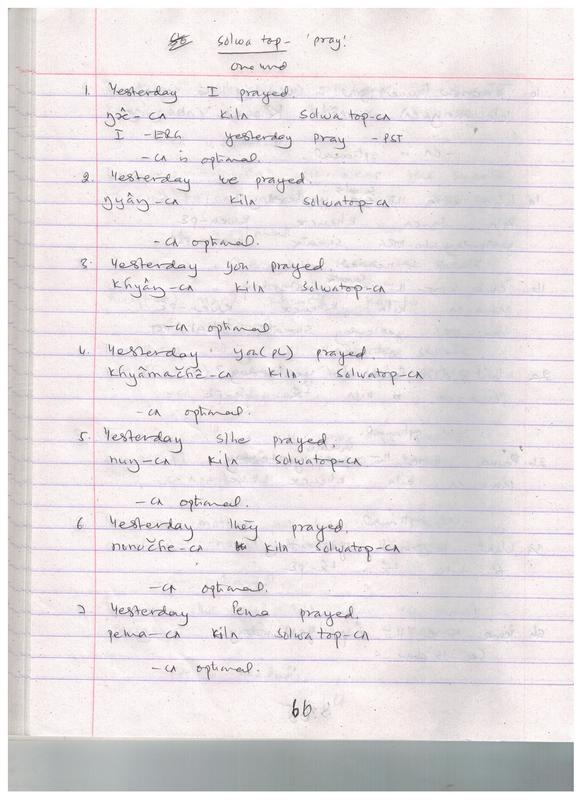 solwa top - 'pray'.
one word
1. Yesterday I prayed.
kiln solwa top-cʌ
I -ERG yesterday pray -PST
-cʌ is optional.
2. Yesterday we prayed.
ŋyâŋ-cʌ kilʌ solwatop-cʌ
-cʌ optional.
3. Yesterday you prayed.
khyâŋ-cʌ kilʌ solwatop-cʌ
-cʌ optional
4. Yesterday you(pl) prayed.
khyâmačhê-cʌ kilʌ solwatop-cʌ
-cʌ optional.
5. Yesterday s/he prayed.
nuŋ-cʌ kilʌ solwatop-cʌ
-cʌ optional.
6. Yesterday they prayed.
nunučhe-cʌ kilʌ solwatop-cʌ
-cʌ optional.
7 Yesterday Pema prayed.
pema-cʌ kilʌ solwa top-cʌ
-cʌ optional.
66